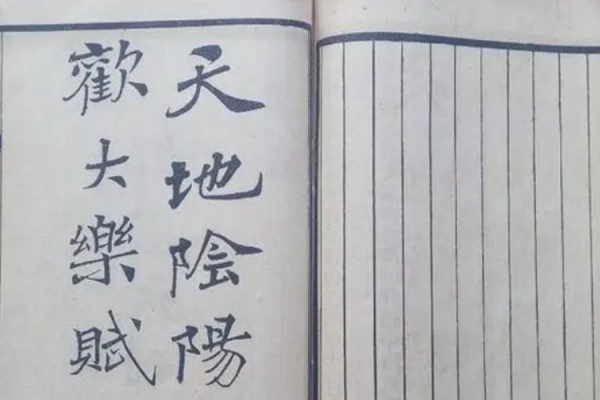 天地陰陽
歡大樂賦